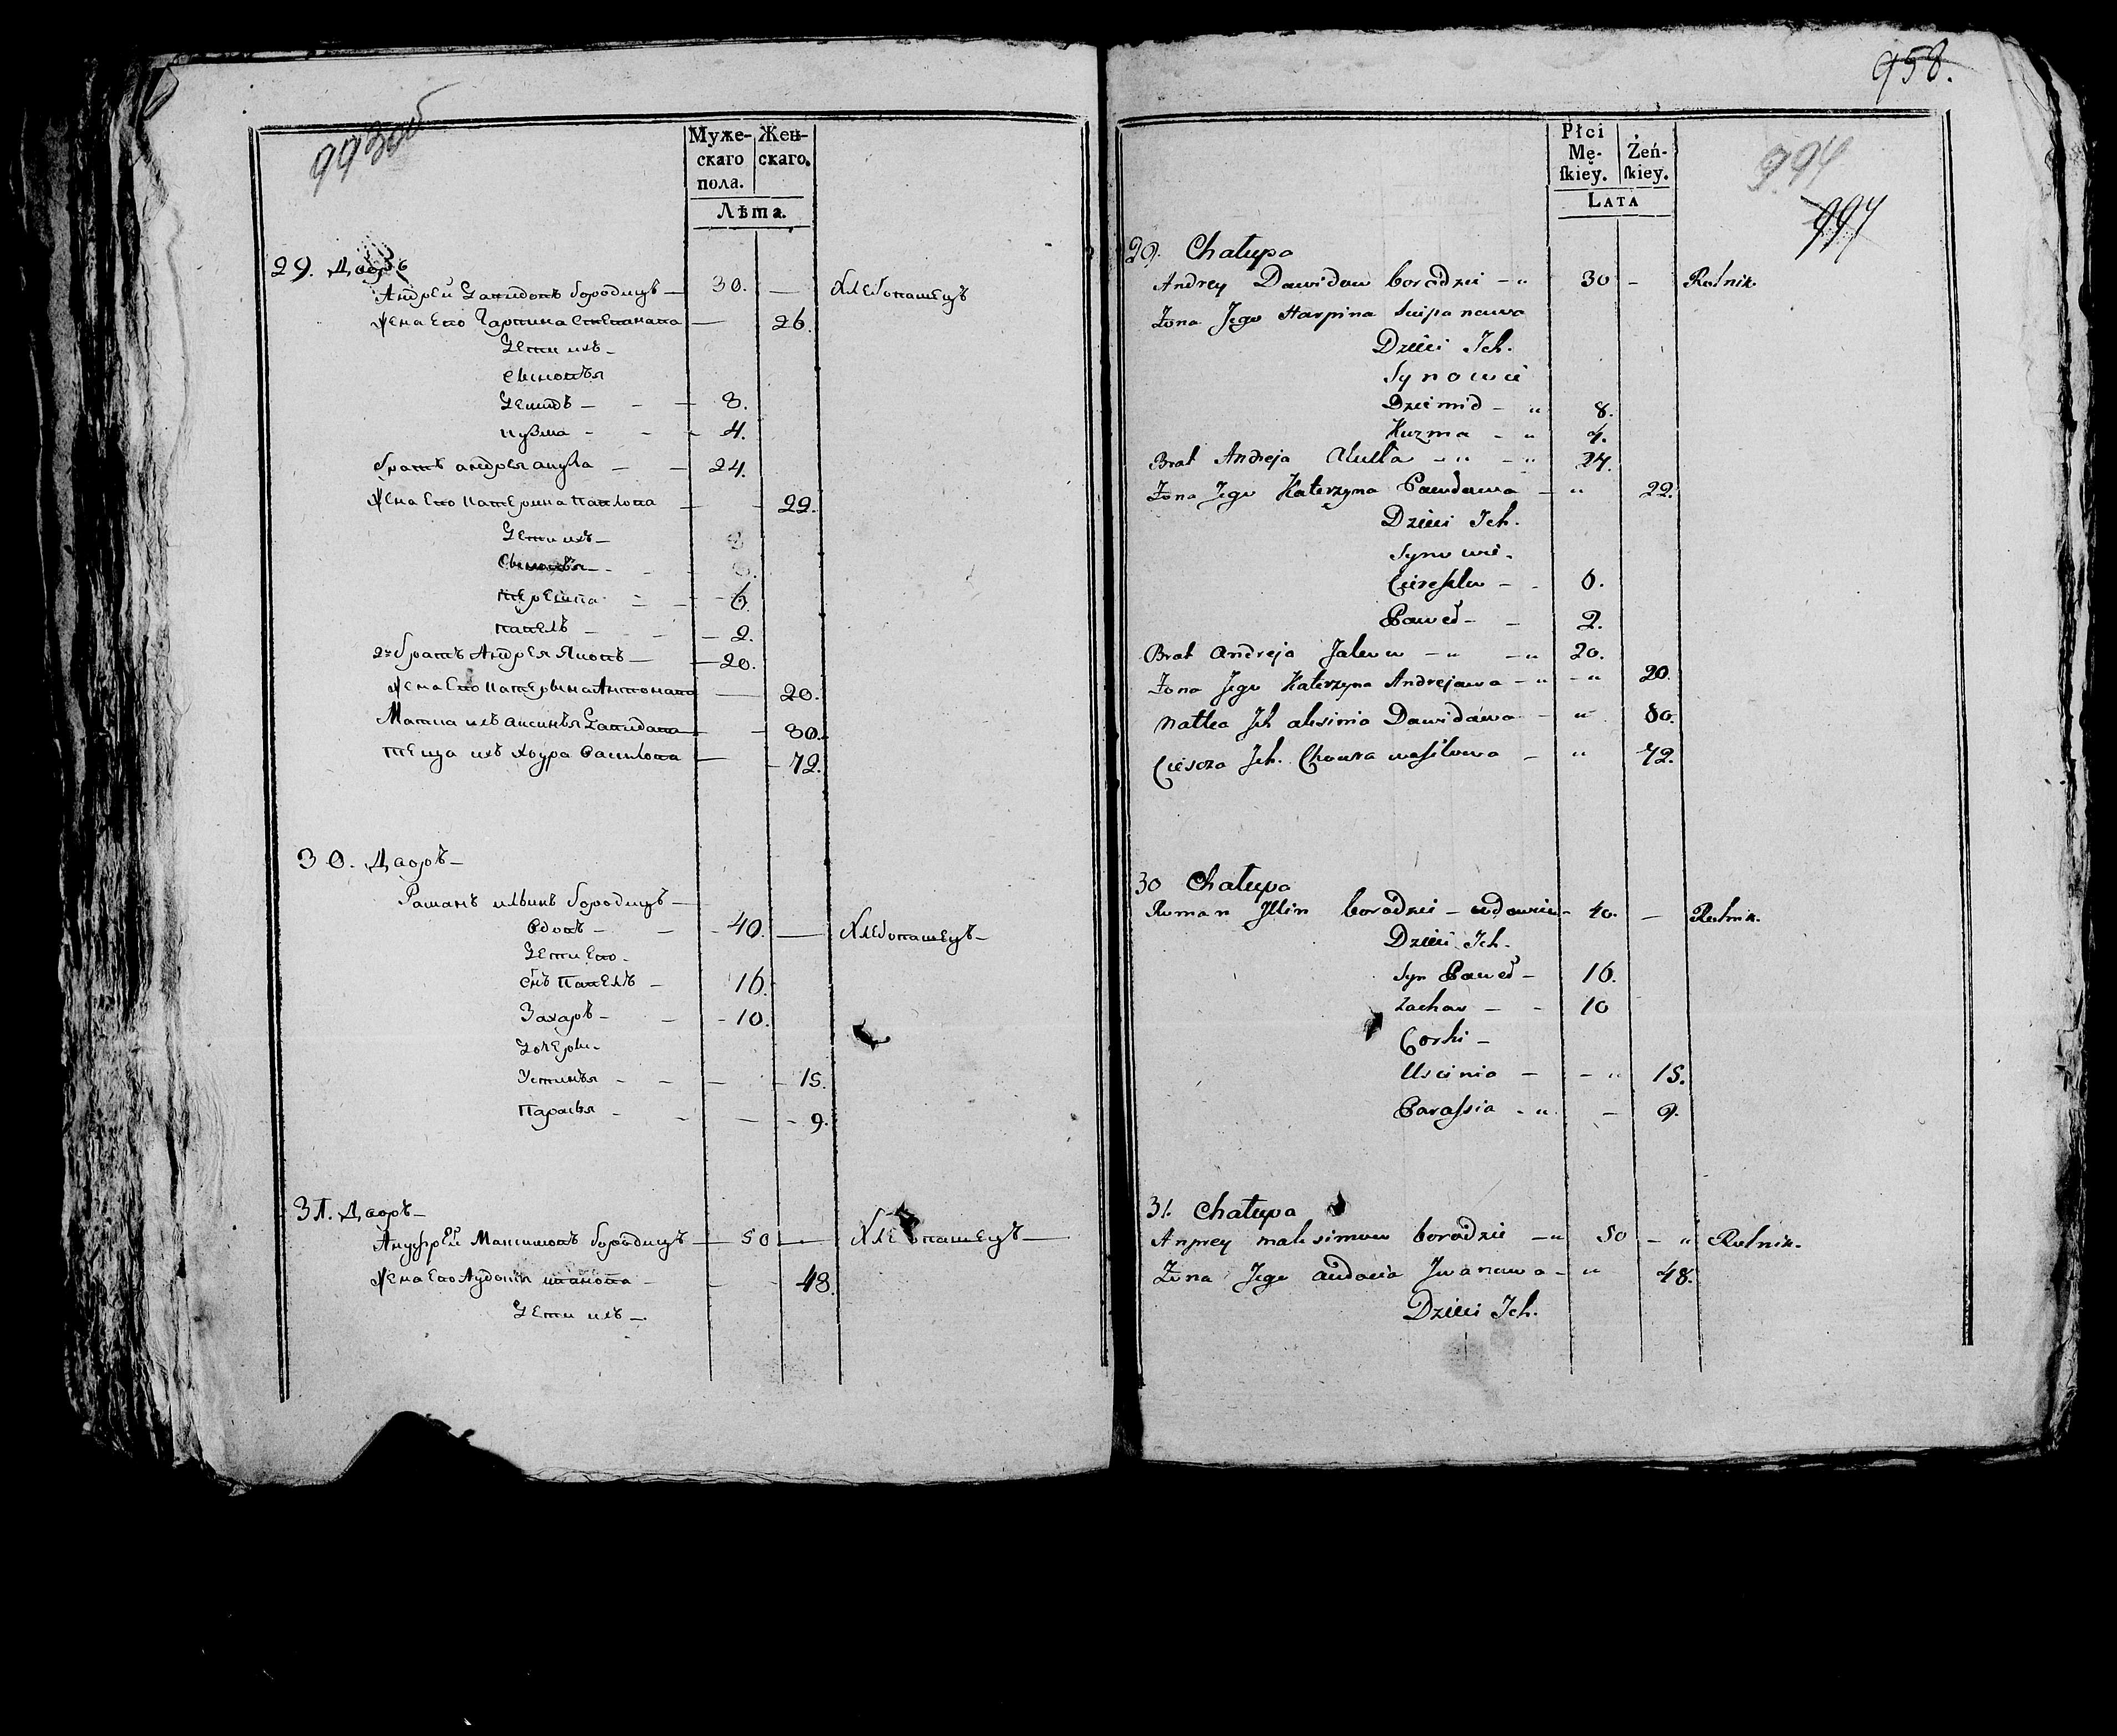 994 об
Муже-
скаго
пола.
Жен-
скаго.
Лѣта.
29. Дворъ
Андрей Давидовъ бородицъ — 30. — Хлебопашецъ
Жена Его Гарпина Степанава — 26.
Дети ихъ —
Сыновья
Демидъ — 8.
Кузма — 4.
братъ андрея акула — 24.
Жена Его Катерина Павлова — 22.
Дети ихъ —
Сыновья —
терешка — 6
Павелъ — 2.
2й братъ Андрея Яковъ — 20.
Жена Его Катерына Антонава — 20.
Матка ихъ аксинья Давидава — 80.
теща ихъ хоура Василова — 72.
30. Дворъ —
Раманъ ильинъ бородицъ —
вдовъ — 40. — Хлебопашецъ —
Дети Его —
снъ Павелъ — 16.
Захаръ — 10.
Дочери —
Устинья — 15.
Парасья — 9.
31. Дворъ —
Ануфрей Максимовъ бородицъ — 50 — Хлебопашецъ —
Жена Его Аудотья иванова — 48.
Дети ихъ —
958.
Płci
Mę-
ſkiey.
Żeń-
ſkiey.
Lata
994
994
29. Chałupa
Andrey Dawidow borodzei — 30 — Rolnik
Zona Jego Harpina Scipanowa
Dzieci Ich.
Synowie
Dziemid — 8.
Kuzma — 4.
Brat Andreja Akuła — 24.
Zona Jego Katerzyna Pawłowa — 22.
Dzieci Ich.
Synowie.
Cireszka — 6.
Paweł — 2.
Brat Andreja Jakow — 20.
Zona Jego Katerzyna Andrejawa — 20.
Matka Ich aksinia Dawidawa — 80.
Ciescza Ich. Chowra wasilowa — 72.
30 Chałupa
Roman Jllin borodzei — wdowiec — 40. — Rolnik.
Dzieci Ich.
Syn Paweł — 16.
Zachar — 10
Corki —
Uscinia — 15.
Paraſsia — 9.
31. Chałupa
Anprey maksimow borodzei — 50 — Rolnik.
Zona Jego audocia Jwanowa — 48.
Dzieci Ich.